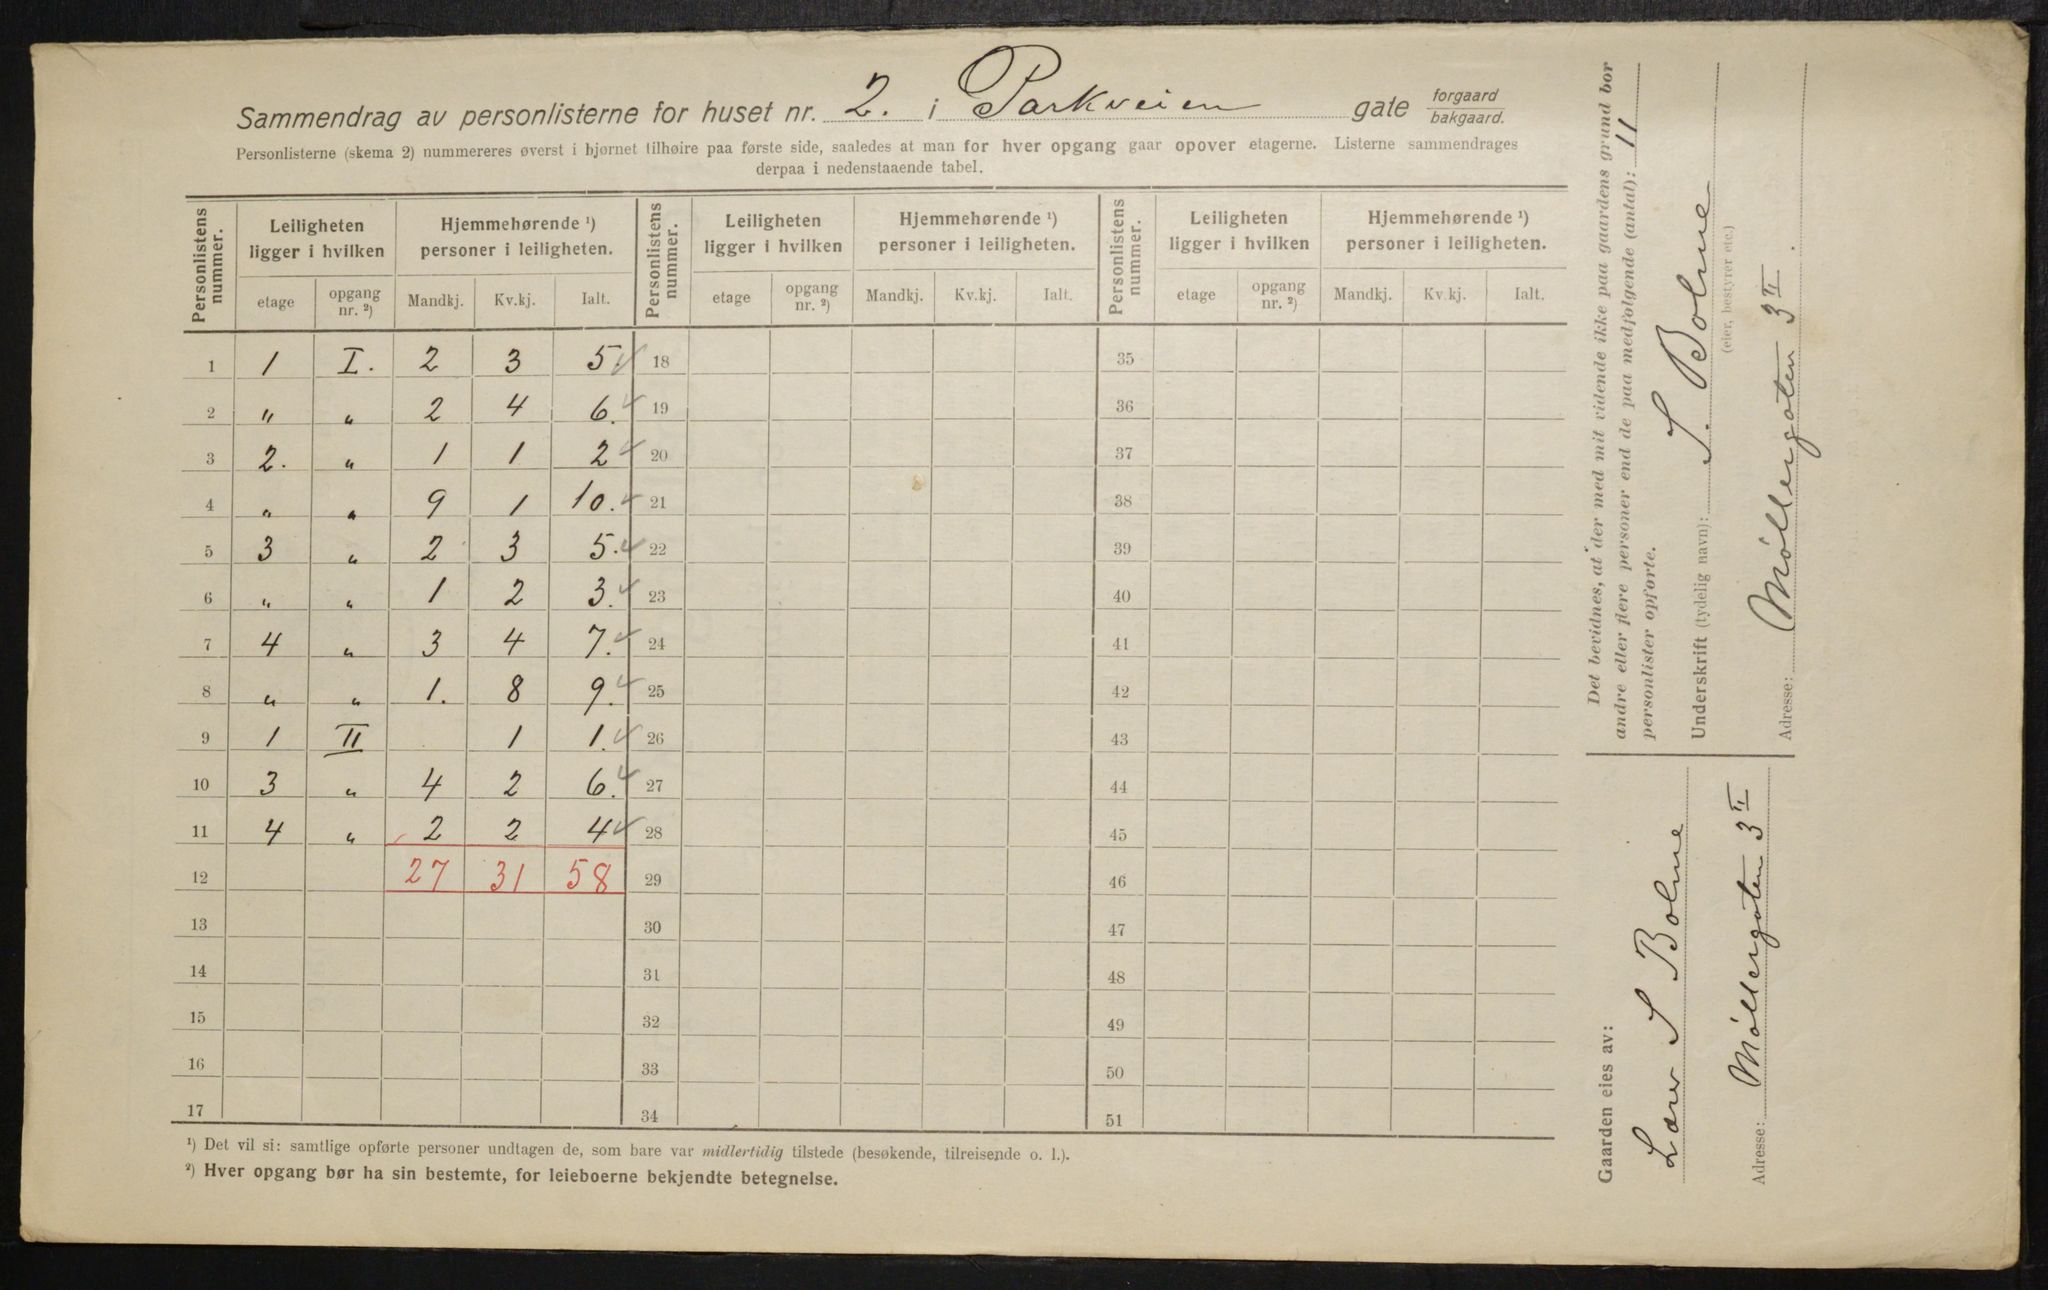 Sammendrag av personlisterne for huset nr. 2. i Parkveien gate forgaard bakgaard.
Personlisterne (skema 2) nummereres øverst i hjørnet tilhøire paa første side, saaledes at man for hver opgang gaar opover etagerne. Listerne sammendrages
derpaa i nedenstaaende tabel.
Personlistens nummer. Leiligheten ligger i hvilken Hjemmehørende ¹) personer i leiligheten. Personlistens nummer. Leiligheten ligger i hvilken Hjemmehørende ¹) personer i leiligheten. Personlistens nummer. Leiligheten ligger i hvilken Hjemmehørende ¹) personer i leiligheten.
etage opgang nr. ²) Mandkj. Kv.kj. Ialt. etage opgang nr. ²) Mandkj. Kv.kj. Ialt. etage opgang nr. ²) Mandkj. Kv.kj. Ialt.
1 1 I. 2 3 5. 18 35
2 " " 2 4 6. 19 36
3 2. " 1 1 2 20 37
4 " " 9 1 10. 21 38
5 3 " 2 3 5. 22 39
6 " " 1 2 3. 23 40
7 4 " 3 4 7. 24 41
8 " " 1. 8 9. 25 42
9 1 II 1 1. 26 43
10 3 " 4 2 6. 27 44
11 4 " 2 2 4 28 45
12 27 31 58 29 46
13 30 47
14 31 48
15 32 49
16 33 50
17 34 51
¹) Det vil si: samtlige opførte personer undtagen de, som bare var midlertidig tilstede (besøkende, tilreisende o. l.).
²) Hver opgang bør ha sin bestemte, for leieboerne bekjendte betegnelse.
Det bevidnes, at der med mit vidende ikke paa gaardens grund bor
andre eller flere personer end de paa medfølgende (antal): 11
personlister opførte.
Underskrift (tydelig navn): S. Bolme
(eier, bestyrer etc.)
Adresse: Möllergaten 3 II.
Gaarden eies av:
Lærer S Bolme
Adresse: Möllergaten 3 II